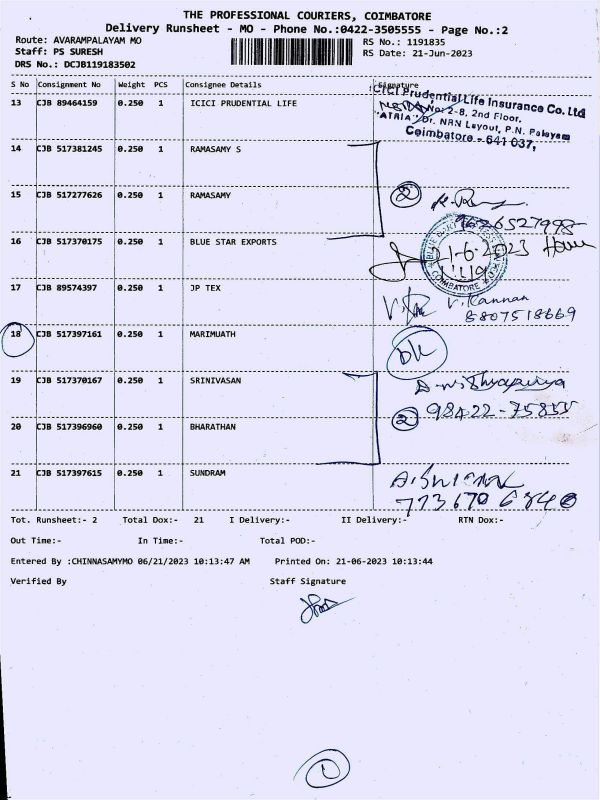 THE PROFESSIONAL COURIERS, COIMBATORE
Delivery Runsheet - MO - Phone No.:0422-3505555 - Page No.:2
Route: AVARAMPALAYAM MO
Staff: PS SURESH
DRS No.: DCJB119183502
RS No.: 1191835
RS Date: 21-Jun-2023
S No Consignment No Weight PCS Consignee Details Signature
13 CJB 89464159 0.250 1 ICICI PRUDENTIAL LIFE
ICICI Prudential Life Insurance Co. Ltd
No: 2-8, 2nd Floor,
"ATRIA" Dr. NRN Layout, P.N. Palayam
Coimbatore - 641 037,
14 CJB 517381245 0.250 1 RAMASAMY S
15 CJB 517277626 0.250 1 RAMASAMY
2
16 CJB 517370175 0.250 1 BLUE STAR EXPORTS
21-6-2023
COIMBATORE
17 CJB 89574397 0.250 1 JP TEX
V. Kannan
8807518669
18 CJB 517397161 0.250 1 MARIMUATH
DK
19 CJB 517370167 0.250 1 SRINIVASAN
98422-75855
2
20 CJB 517396960 0.250 1 BHARATHAN
21 CJB 517397615 0.250 1 SUNDRAM
Tot. Runsheet:- 2 Total Dox:- 21 I Delivery:- II Delivery:- RTN Dox:-
Out Time:- In Time:- Total POD:-
Entered By :CHINNASAMYMO 06/21/2023 10:13:47 AM Printed On: 21-06-2023 10:13:44
Verified By Staff Signature
1